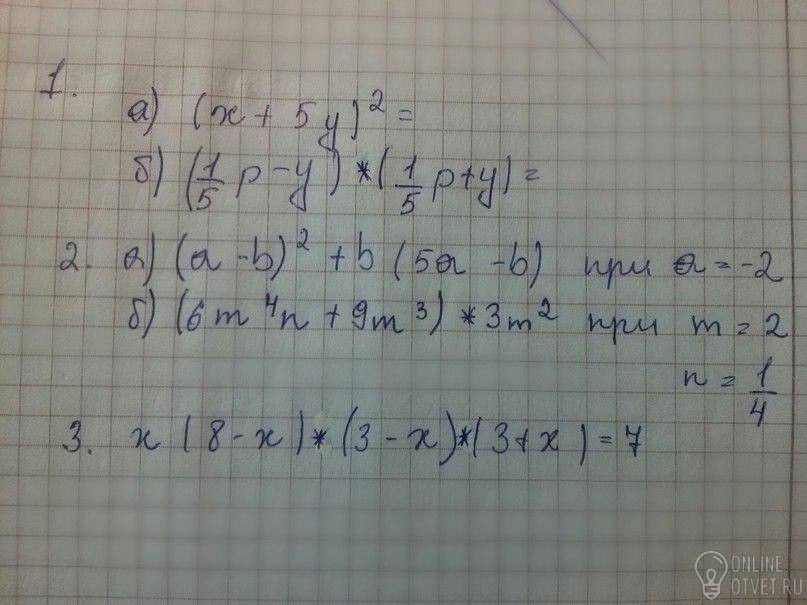 1.
а) (x + 5y)² =
б) (1/5 p - y) * (1/5 p + y) =
2. а) (a - b)² + b (5a - b) при a = -2
б) (6m⁴n + 9m³) * 3m² при m = 2
n = 1/4
3. x (8 - x) * (3 - x) * (3 + x) = 7
ONLINE
OTVET.RU